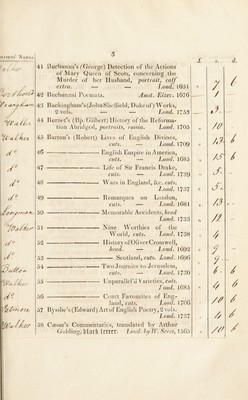 CHASERS' NAMES.
5
£ s. d.
Walker 41 Buchanan's (George) Detection of the Actions
of Mary Queen of Scots, concerning the
Murder of her Husband, portrait, calf
extra. — — Lond. 1651 7 6
42 Buchanani Poemata. Amst. Elzev. 1676 1
43 Buckingham's (John Sheffield, Duke of) Works,
2 vols. — — Lond. 1753 3
44 Burnet's (Bp. Gilbert) History of the Reforma-
tion Abridged, portraits, russia. Lond. 1705 10
Walker 45 Burton's (Robert) Lives of English Divines,
cuts. — Lond. 1709 13 6
do 46 ——— English Empire in America,
cuts. — Lond. 1685 15 6
do 47 ——— Life of Sir Francis Drake,
cuts. — Lond. 1739 5
do 48 ——— Wars in England, &c. cuts.
Lond. 1737 5
do 49 ——— Remarques on London,
cuts. — Lond. 1681 13
Longman 50 ——— Memorable Accidents, head
Lond. 1733 12
Walker 51 ——— Nine Worthies of the
World, cuts. Lond. 1738 4
do 52 ——— History of Oliver Cromwell,
head. — Lond. 1692 9
do 53 ——— Scotland, cuts. Lond. 1696 9
Dutton 54 ——— Two Journies to Jerusalem,
cuts. — Lond. 1730 6 6
Walker 55 ——— Unparallel'd Varieties, cuts.
Lond. 1685 4 6
do 56 ——— Court Favourites of Eng-
land, cuts. Lond. 1706 10 6
57 Bysshe's (Edward) Art of English Poetry, 2 vols.
Lond. 1737 4 6
Walker 58 Cæsar's Commentaries, translated by Arthur
Golding, black letter. Lond. by W. Seres, 1565 10 6